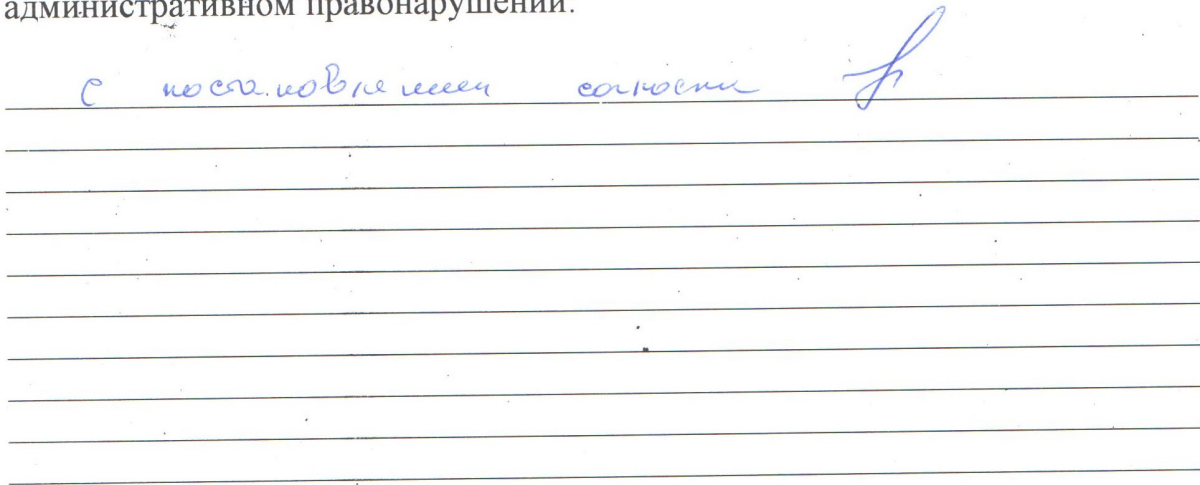 административном правонарушении.
С постановлением согласен